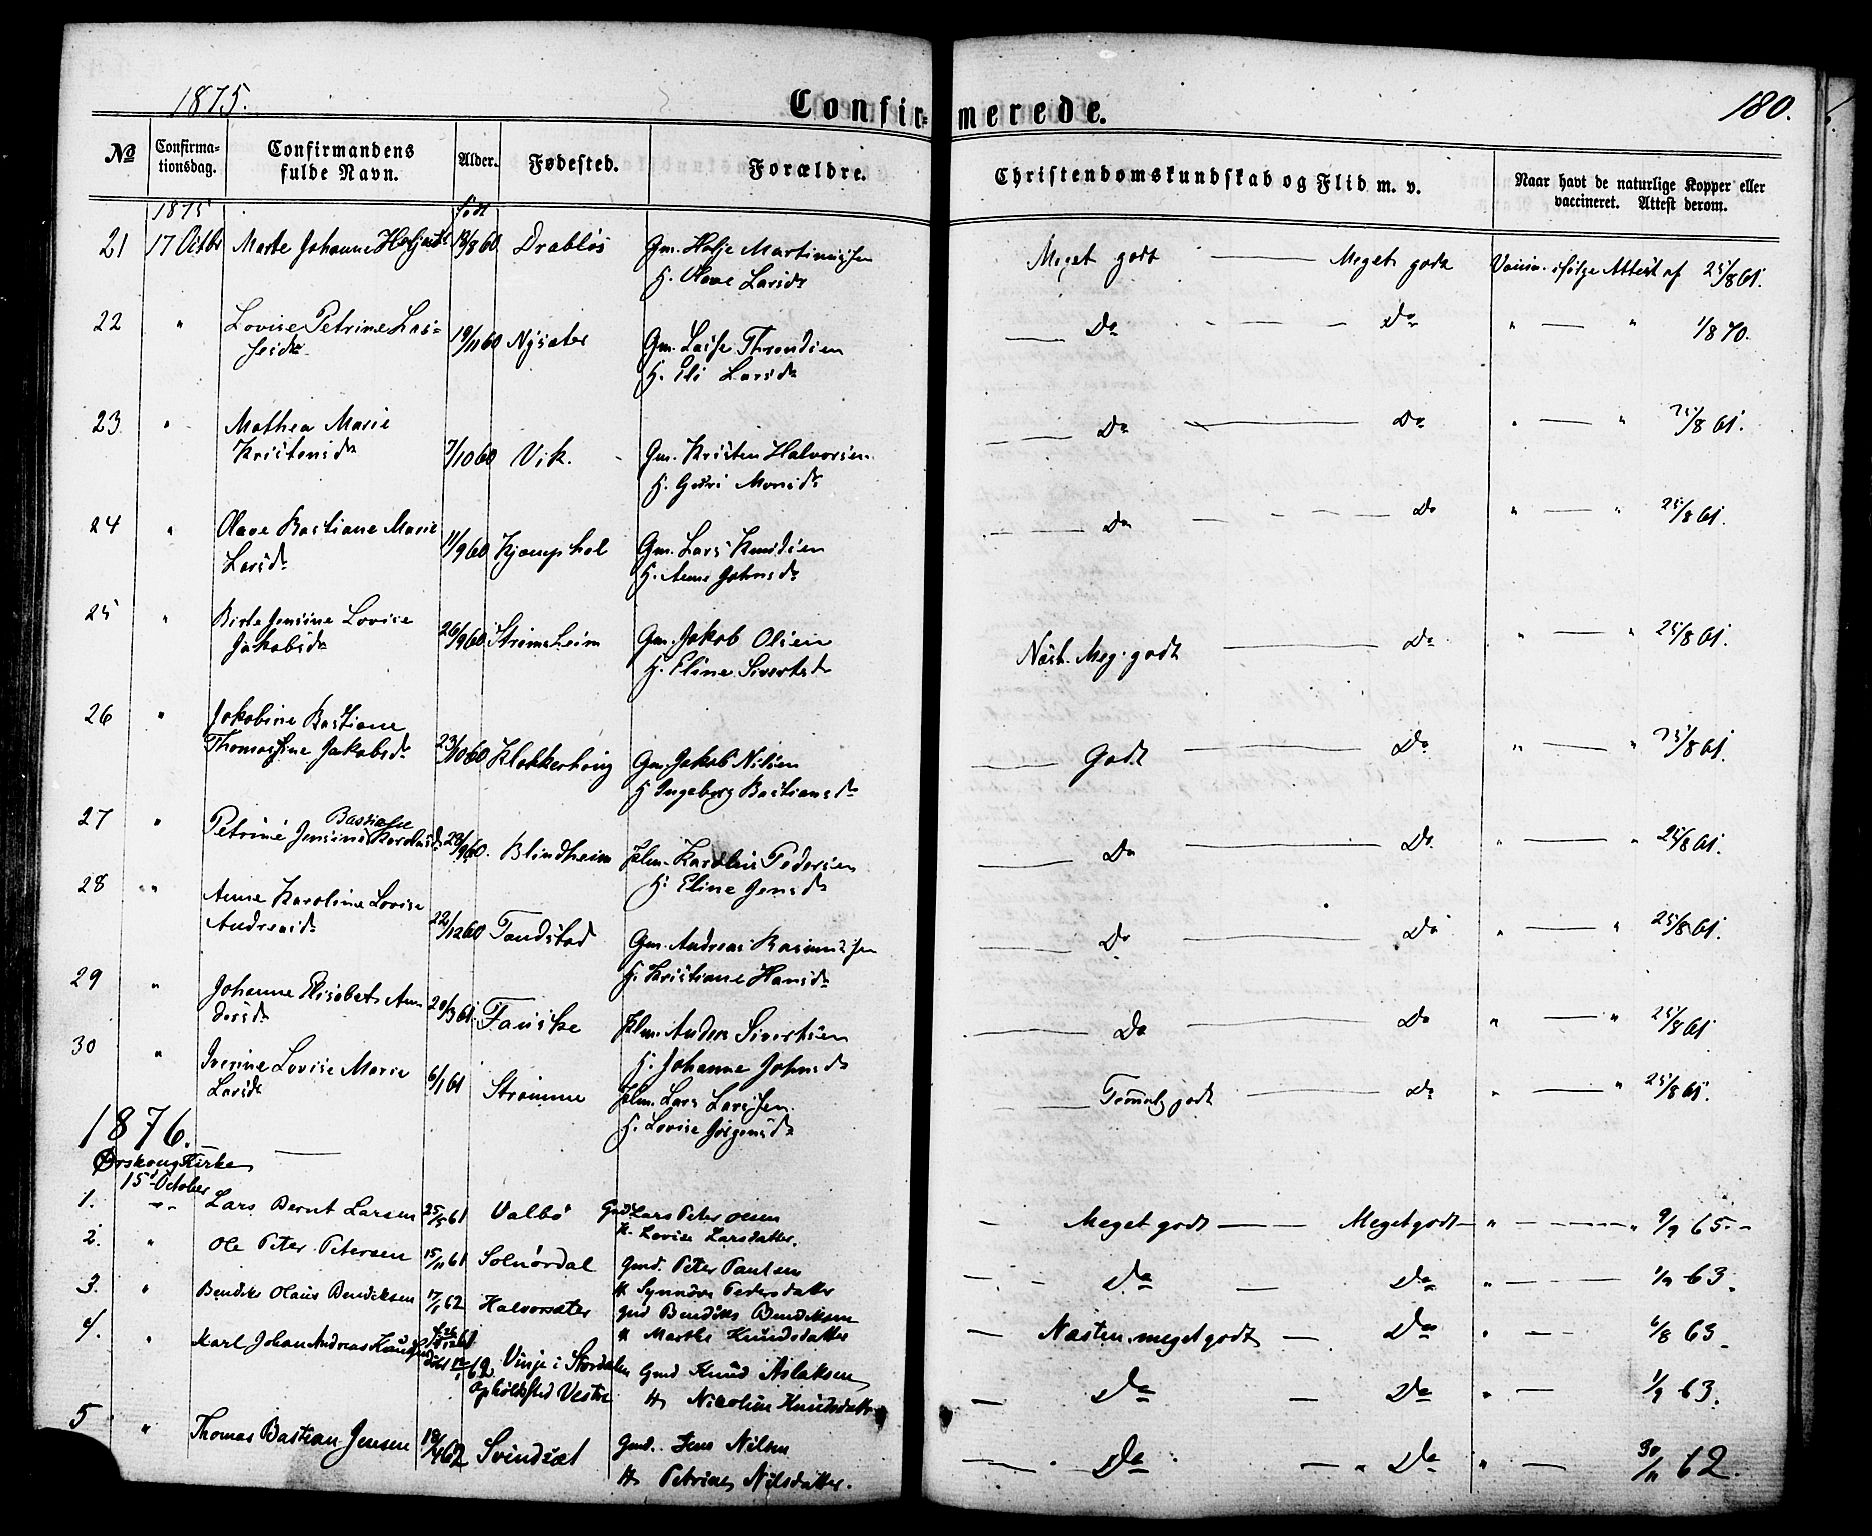 1875.
Confirmerede.
180.
№ Confirmationsdag. Confirmandens fulde Navn. Alder. Fødested. Forældre. Christendomskundskab og Flid m. v. Naar havt de naturlige Kopper eller vaccineret. Attest derom.
1875 født
21 17 Octbr Marte Johanne 18/8 60 Drabløs Gm. Helje Martinussen Meget godt — Meget godt Vaccin. ifølge Attest af 25/8 61.
K. Olave Larsdr
22 " Lovise Petrine Las= 19/11 60 Nysæter Gm. Lasse Throndsen Do Do " — " 1/8 70.
sesdr K. Eli Larsdr
23 " Mathea Marie
Kristensdr 7/10 60 Vik. Gm. Kristen Halvorsen Do — Do " — " 25/8 61.
K. Guri Monsdr
24 " Olave Bastiane Marie
Larsdr 11/9 60 Kjamphol Gm. Lars Knudsen Do — Do " — " 25/8 61.
K. Anne Johnsdr
25 " Birte Jensine Lovise
Jakobsdr 26/9 60 Strømsheim Gm. Jakob Olsen Næst. Meg. godt — Do " — " 25/8 61.
K. Eline Sivertsdr
26 " Jakobine Bastiane
Thomassine Jakobsdr 23/10 60 Klokkerhoug Gm. Jakob Nilsen Godt — Do " — " 25/8 61.
K Ingeborg Bastiansdr
27 " Petrine Jensine Bastiane Karolusdr 28/9 60. Blindheim Hlm. Karolus Pedersen Do — Do " — " 25/8 61.
K. Eline Jensdr
28 " Anne Karoline Lovise
Andreasdr 22/12 60 Tandstad Gm. Andreas Rasmussen Do — Do " — " 25/8 61.
K. Kristiane Hansdr
29 " Johanne Elisabet An=
dersdr 20/3 61. Fauske Hlm. Anders Sivertsen Do — Do " — " 25/8 61
K. Johanne Johnsdr
30 " Iverine Lovise Marie
Larsdr 6/1 61 Strømme Hlm. Lars Larssen Temmelig godt — Do " — " 25/8 61.
K. Lovise Jørgensdr
1876.
Ørskoug Kirke
15de October
1. " Lars Bernt Larsen 25/5 61 Valbø Gmd Lars Peter Olsen Meget godt — Meget godt — " — " 9/9 65.
K. Lovise Larsdatter.
2. " Ole Peter Petersen 15/11 61 Solnørdal Gmd. Peter Paulsen Do — Do " — 1/9 63.
K Synnøve Pedersdatter
3. " Bendiks Olaus Bendiksen 17/1 62 Halvorsæter Gmd Bendiks Bendiksen Næsten meget godt — Do " — 6/8 63
K Marthe Knudsdatter
4. " Karl Johan Andreas Knudsen Vinje i Stordalen Gmd Knud Aslaksen Do — Do " — 1/9 63.
Opholdssted Vestre K Nicoline Knudsdatter
5 " Thomas Bastian Jensen 18/4 62 Svindset Gmd. Jens Nilsen Do — Do " — 30/11 62.
K Petrine Nilsdatter.